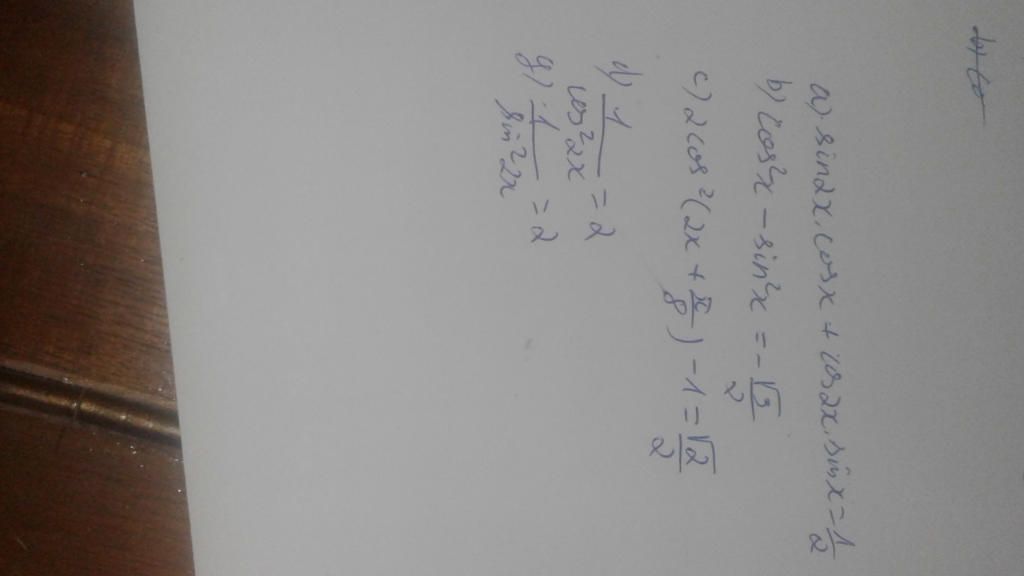 a) sin2x.cosx + cos2x.sinx = 1/2
b) cos²x - sin²x = -√3/2
c) 2cos²(2x + π/8) - 1 = √2/2
d) 1/cos²2x = 2
g) 1/sin²2x = 2